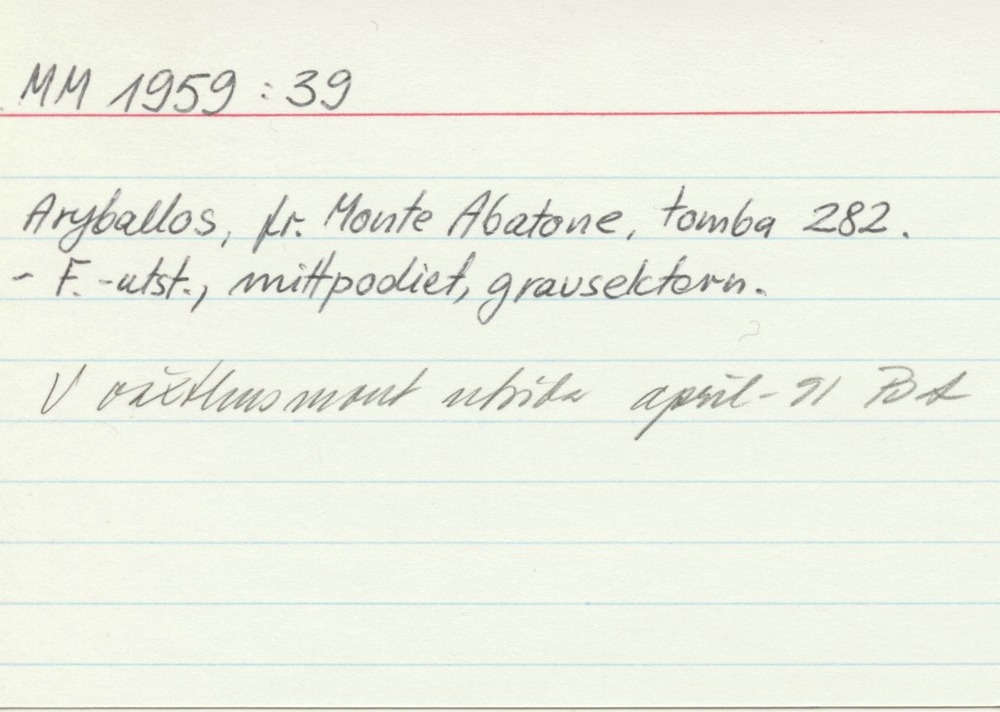 MM 1959 : 39
Aryballos, fr. Monte Abatone, tomba 282.
- F.-utst., mittpodiet, gravsektorn.
V växthusmont april - 91